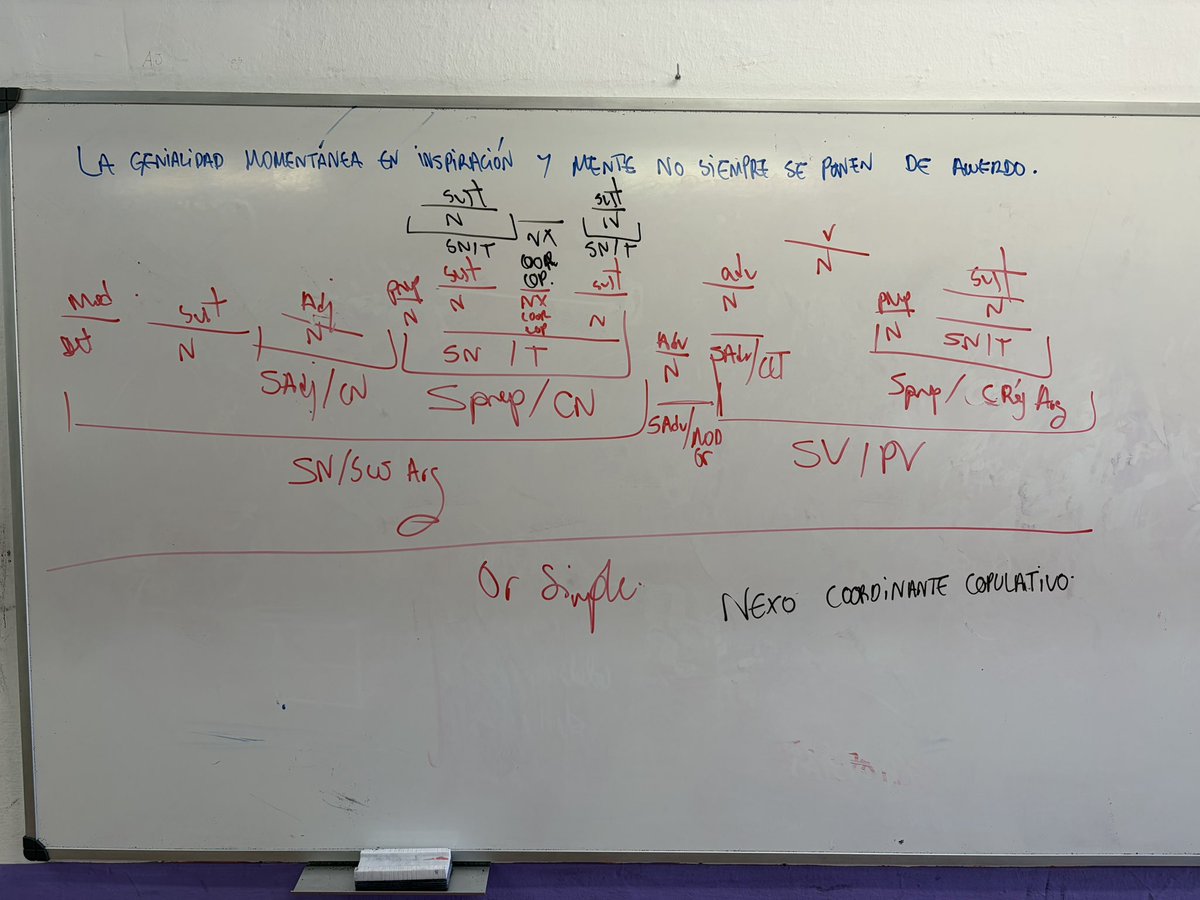 LA GENIALIDAD MOMENTÁNEA EN INSPIRACIÓN Y MENTE NO SIEMPRE SE PONEN DE ACUERDO.
sust sust
N N
SN/T NX SN/T
COOR
COP.
V
N
Mod sust Adj prep sust NX sust adv prep sust
Det N N N N COOR N N N N
COP
SN / T Adv SAdv/CCT SN/T
N
SAdj/CN Sprep/CN SAdv/MOD Sprep/. CRég Arg
Or
SN/SUJ Arg SV/PV
Or Simple.
NEXO COORDINANTE COPULATIVO.